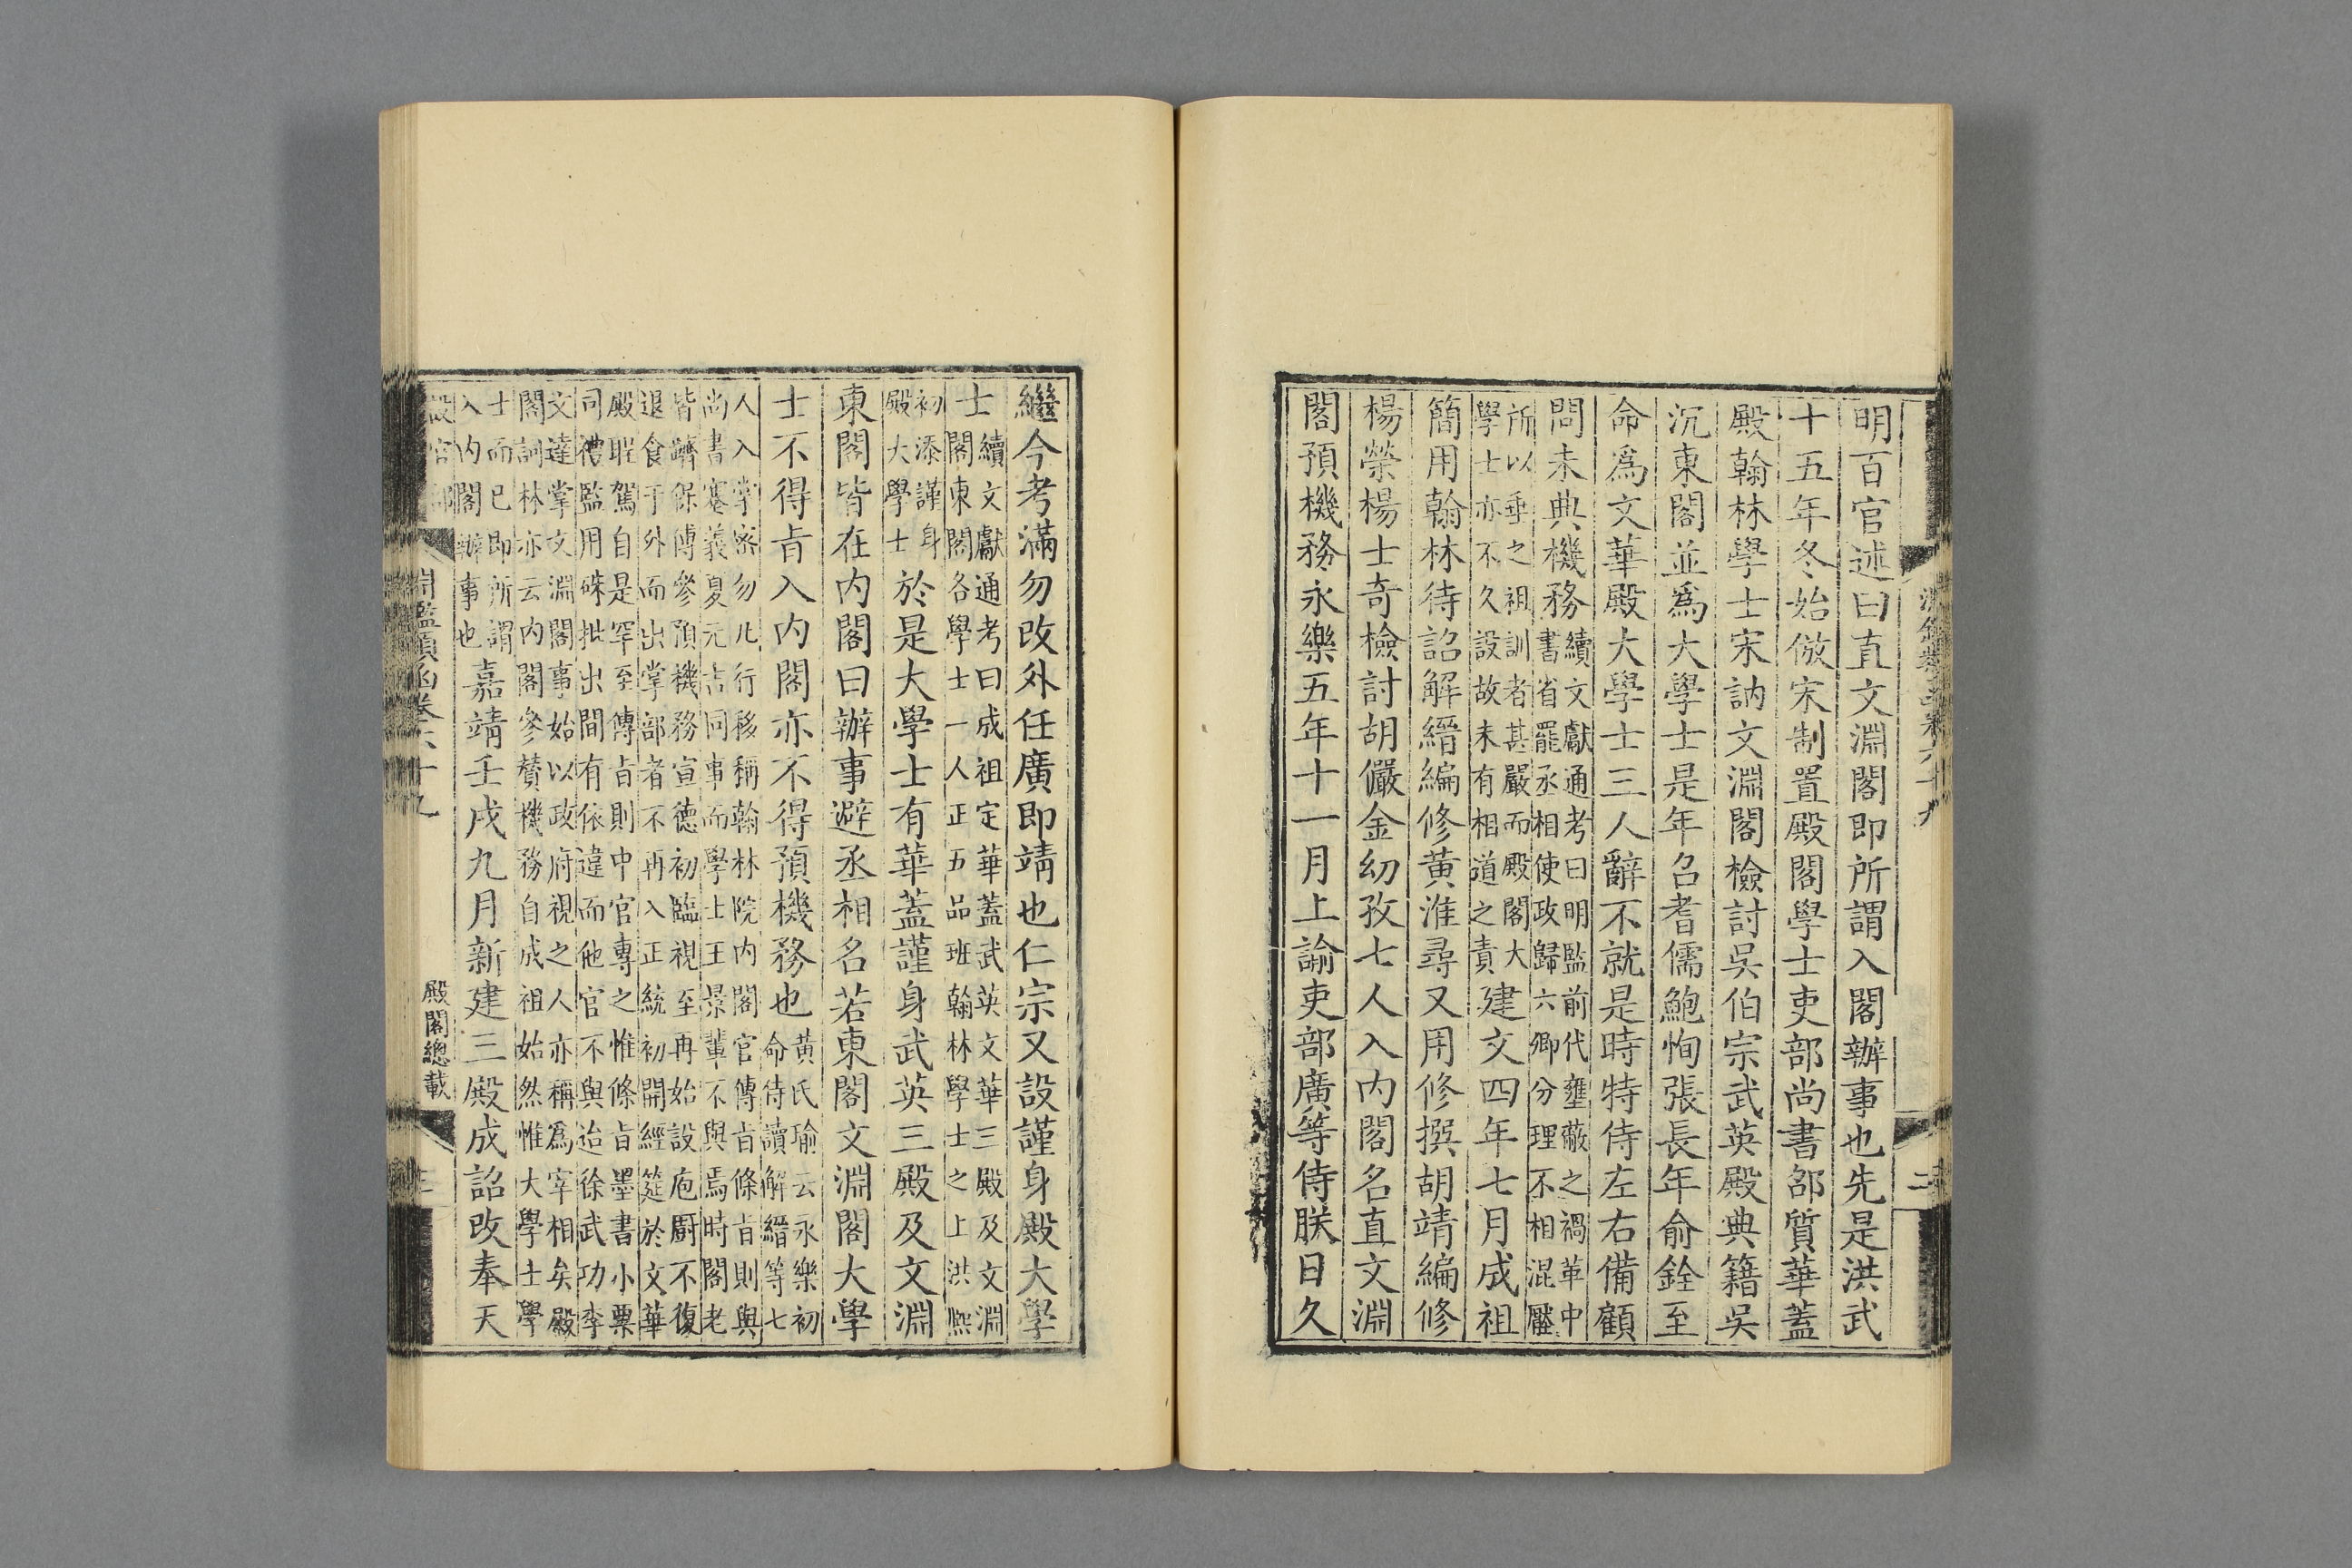 明百官述曰直文淵閣即所謂入閣辦事也先是洪武
十五年冬始倣宋制置殿閣學士吏部尚書邵質華蓋
殿翰林學士宋訥文淵閣檢討吳伯宗武英殿典籍吳
沉東閣並爲大學士是年召耆儒鮑恂張長年俞銓至
命爲文華殿大學士三人辭不就是時特侍左右備顧
問未典機務
續文獻通考曰明監前代壅蔽之禍革中
書省罷丞相使政歸六卿分理不相混壓
所以垂之祖訓者甚嚴而殿閣大
學士亦不久設故未有相道之責
建文四年七月成祖
簡用翰林待詔解縉編修黃淮尋又用修撰胡靖編修
楊榮楊士奇檢討胡儼金幼孜七人入內閣名直文淵
閣預機務永樂五年十一月上諭吏部廣等侍朕日久
繼今考滿勿改外任廣即靖也仁宗又設謹身殿大學
士
續文獻通考曰成祖定華蓋武英文華三殿及文淵
閣東閣各學士一人正五品班翰林學士之上洪熈
初添謹身
殿大學士
於是大學士有華蓋謹身武英三殿及文淵
東閣皆在內閣曰辦事避丞相名若東閣文淵閣大學
士不得㫖入內閣亦不得預機務也
黃氏瑜云永樂初
命侍讀解縉等七
人入掌密勿凡行移稱翰林院內閣官傳㫖條㫖則與
尚書蹇義夏元吉同事而學士王景輩不與焉時閣老
皆躋保傅參預機務宣德初臨視至再始設庖厨不復
退食于外而出掌部者不再入正統初開經筵於文華
殿駕自是罕至傳㫖則中官專之惟條㫖墨書小票
司禮監用硃批出間有依違而他官不與迨徐武功李
文達掌文淵閣事始以政府視之人亦稱爲宰相矣殿
閣詞林亦云內閣參贊機務自成祖始然惟大學士學
士而已即所謂
入內閣辦事也
嘉靖壬戌九月新建三殿成詔改奉天
淵鑑類函卷六十九
殿閣總載